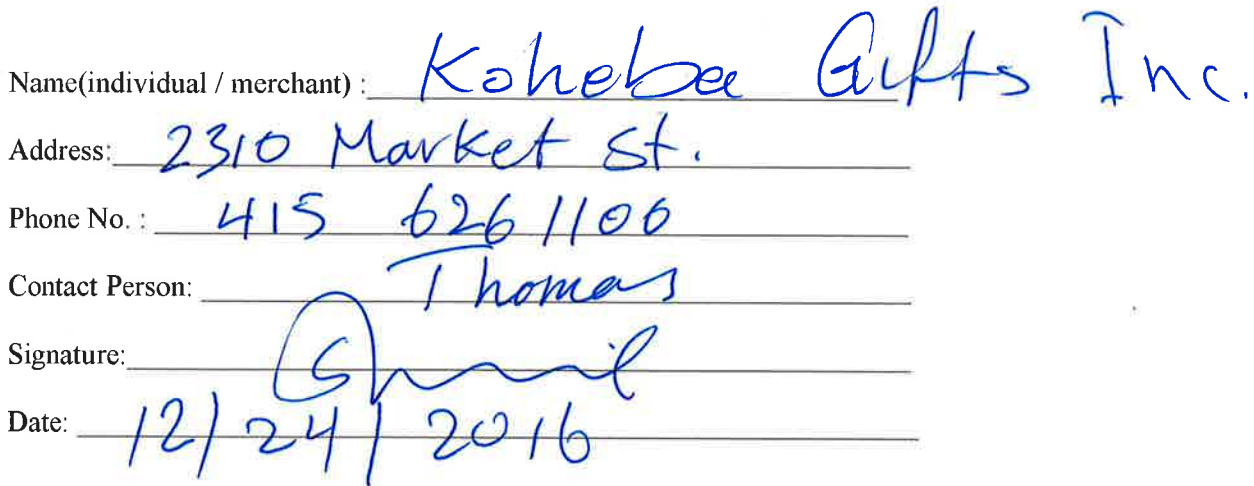 Name(individual / merchant) : Koheba Gifts Inc.
Address: 2310 Market St.
Phone No. : 415 626 1100
Contact Person: Thomas
Signature:
Date: 12/24/2016